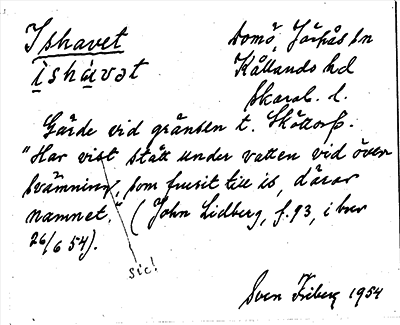 Ishavet
Domö, Järpås sn
ishávət
Kållands hd
Skarab. l.
Gärde vid gränsen t. Skättorp.
"Har visst stått under vatten vid över-
svämning, som frusit till is, därav
namnet." (John Lidberg, f. 93, i brev
26/6 54).
sic!
Sven Friberg 1954